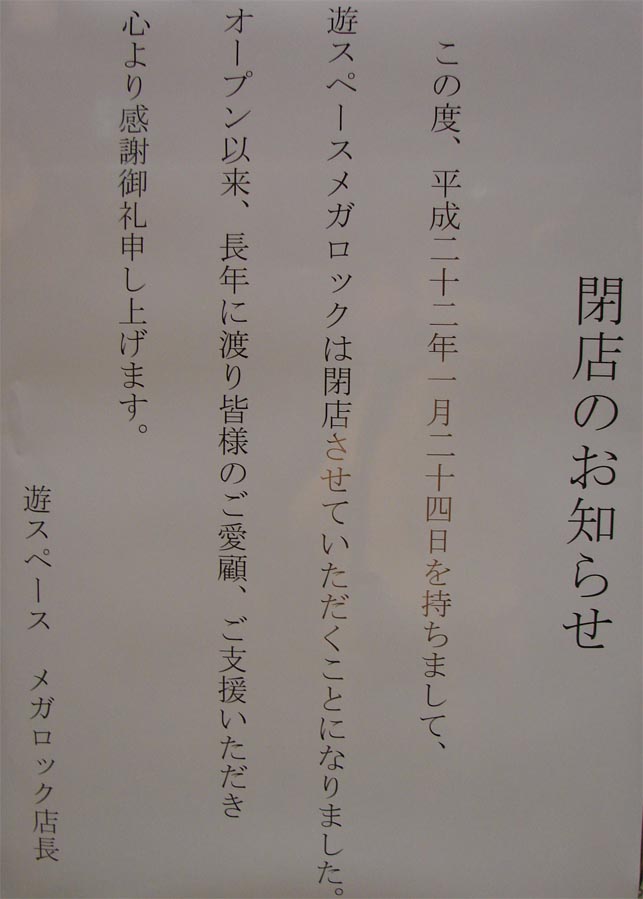 閉店のお知らせ
この度、平成二十二年一月二十四日を持ちまして、
遊スペースメガロックは閉店させていただくことになりました。
オープン以来、長年に渡り皆様のご愛顧、ご支援いただき
心より感謝御礼申し上げます。
遊スペース　メガロック店長